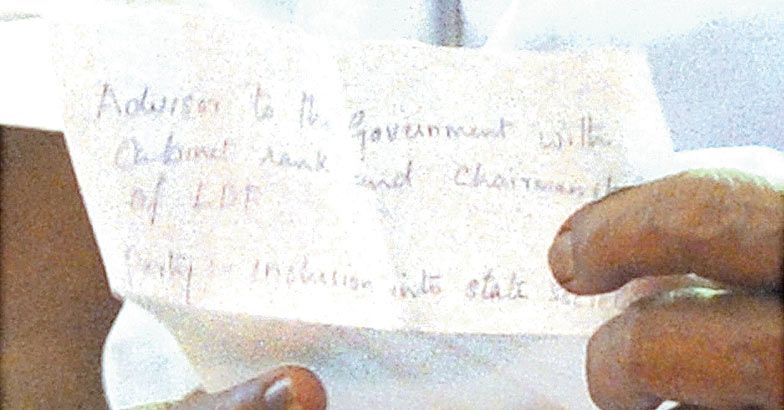 Advisor to the Government with
Cabinet rank and Chairmanship
of LDF
Party inclusion into state